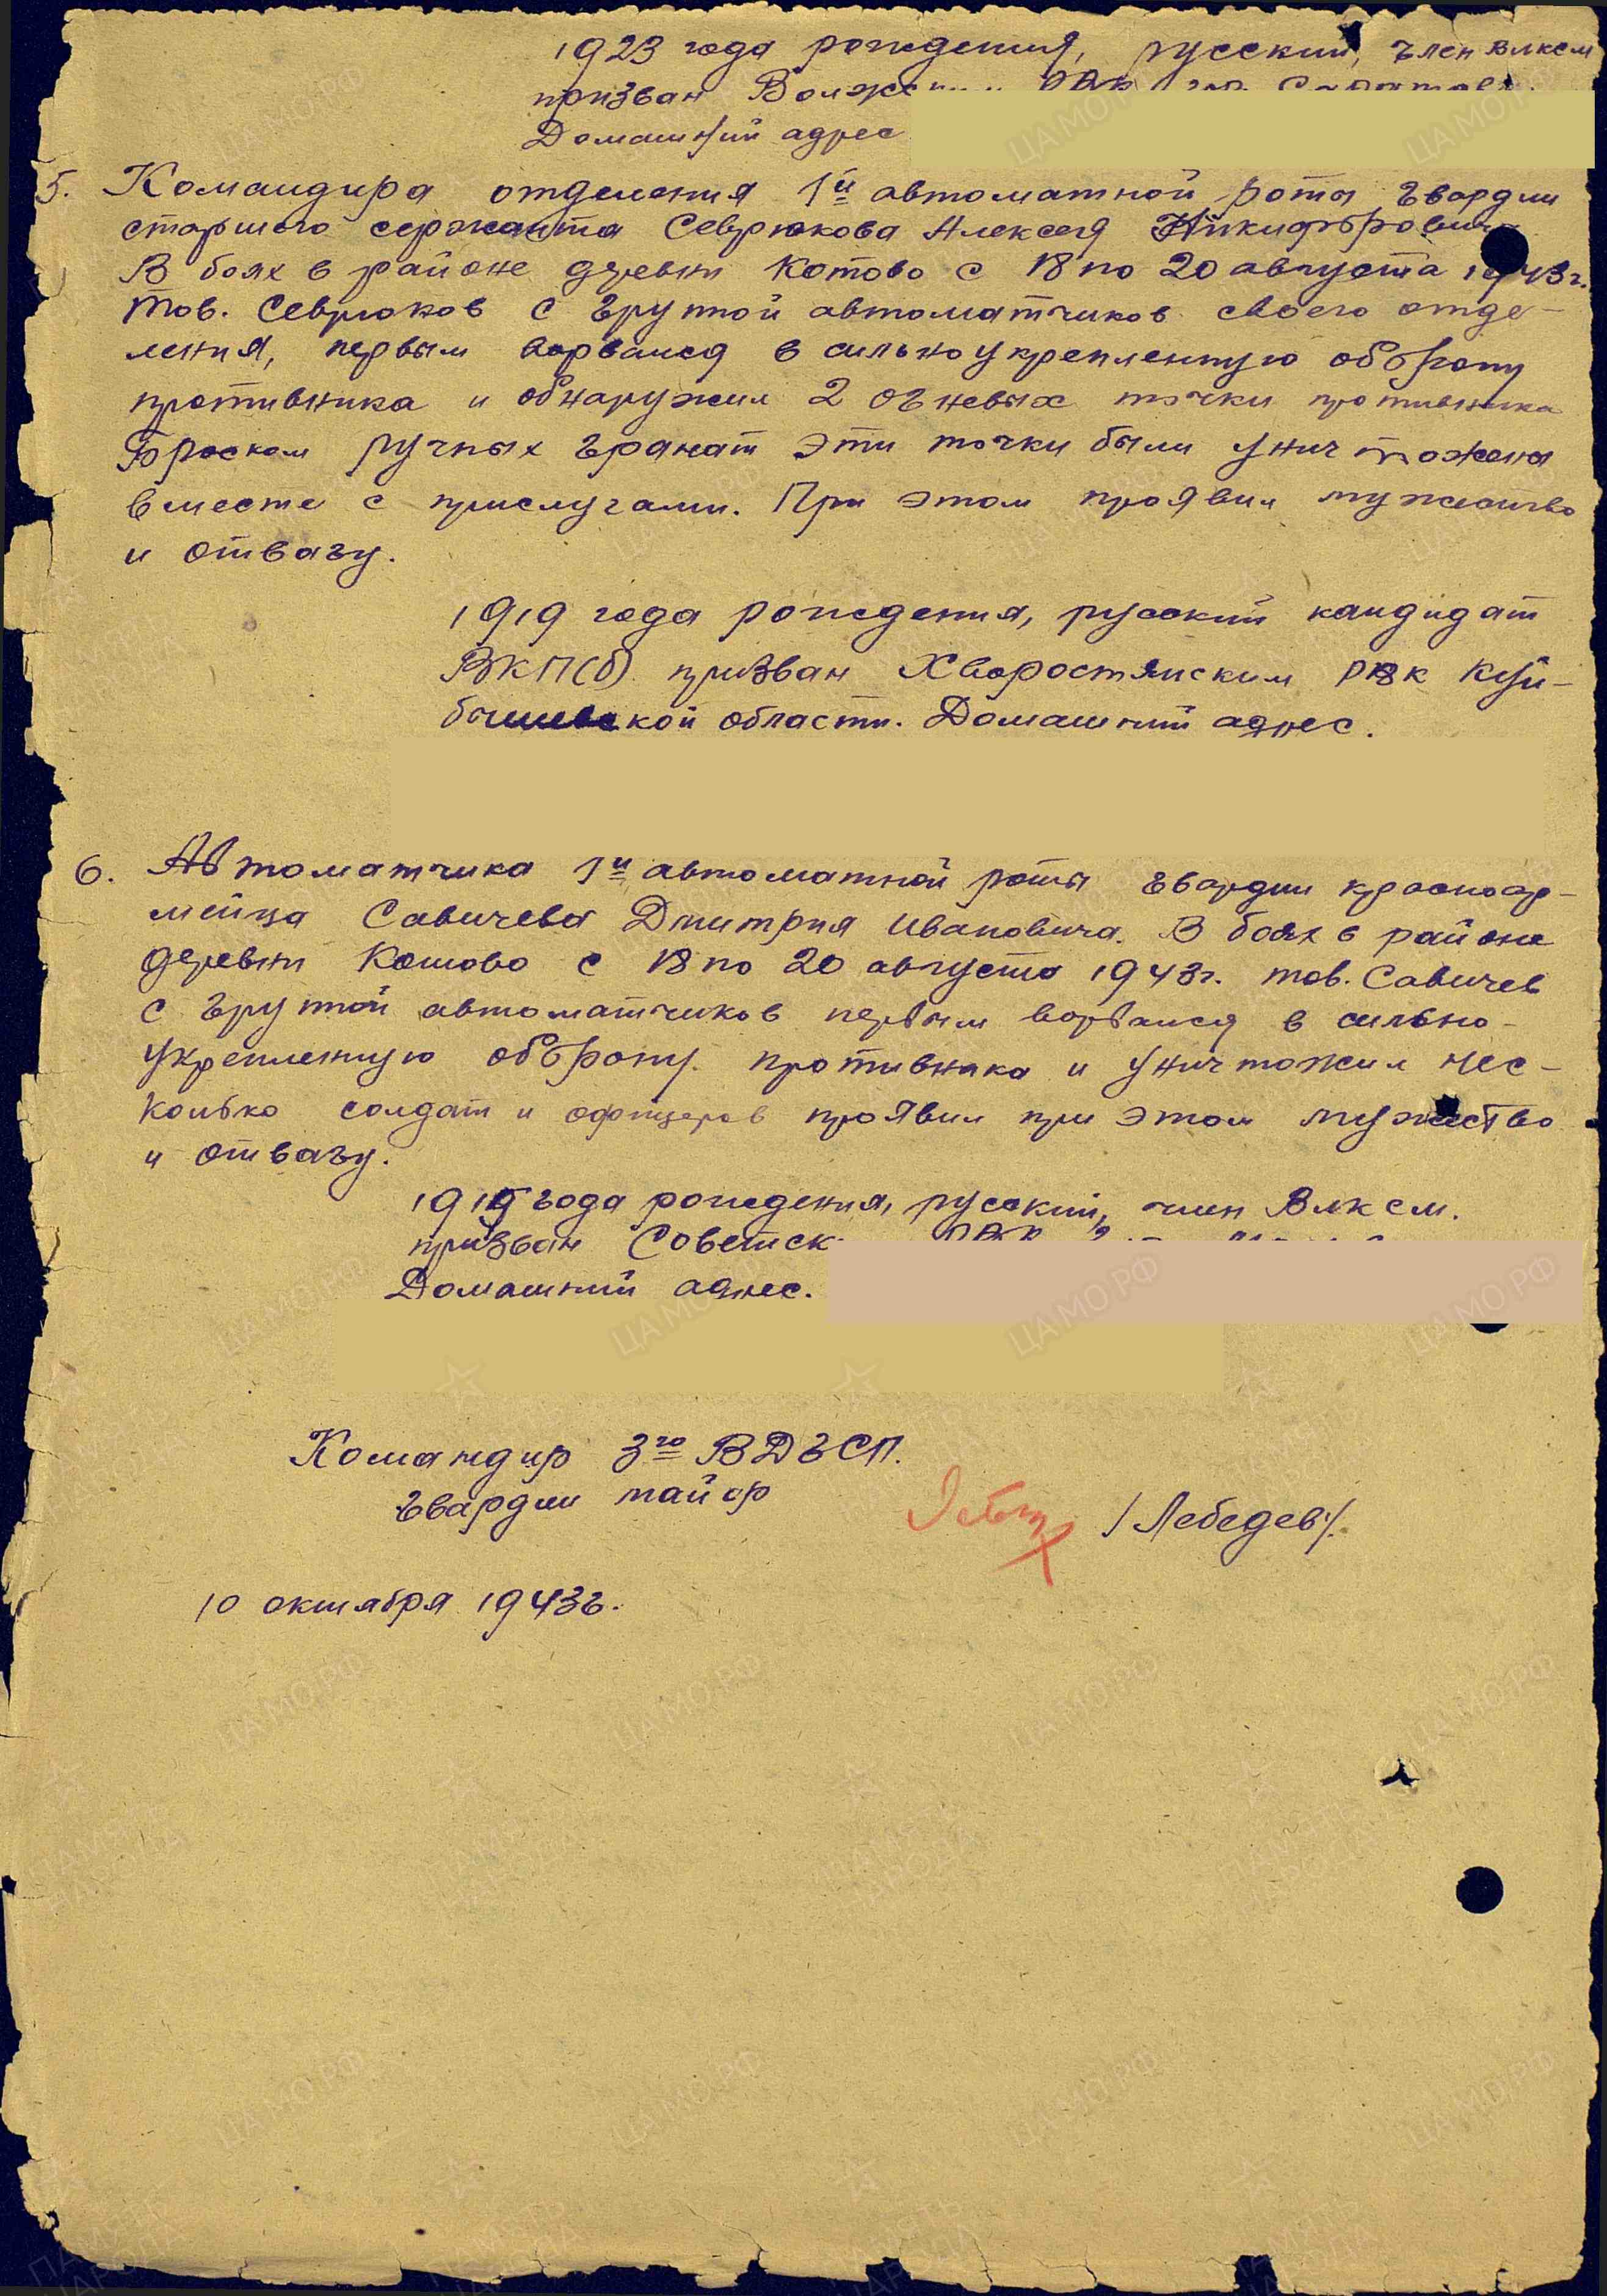 1923 года рождения, русский, член влксм
призван Волжским РВК гор. Саратова.
Домашний адрес
5. Командира отделения 1й автоматной роты гвардии
старшего сержанта Севрюкова Алексея Никифоровича
В боях в районе деревни Котово с 18 по 20 августа 1943г.
тов. Севрюков с групой автоматчиков своего отде-
ления, первым ворвался в сильноукрепленную оборону
противника и обнаружил 2 огневых точки противника
Броском ручных гранат эти точки были уничтожены
вместе с прислугами. При этом проявил мужество
и отвагу.
1919 года рождения, русский кандидат
ВКП(б) призван Хворостянским РВК Куй-
бышевской области. Домашний адрес.
6. Автоматчика 1й автоматной роты гвардии красноар-
мейца Савичева Дмитрия Ивановича. В боях в районе
деревни Котово с 18 по 20 августа 1943г. тов. Савичев
с групой автоматчиков первым ворвался в сильно-
укрепленную оборону противника и уничтожил нес-
колько солдат и офицеров проявил при этом мужество
и отвагу.
года рождения, русский, член Влксм.
призван РВК
Домашний адрес.
Командир 3го ВДГСП.
гвардии майор /Лебедев/.
10 октября 1943г.